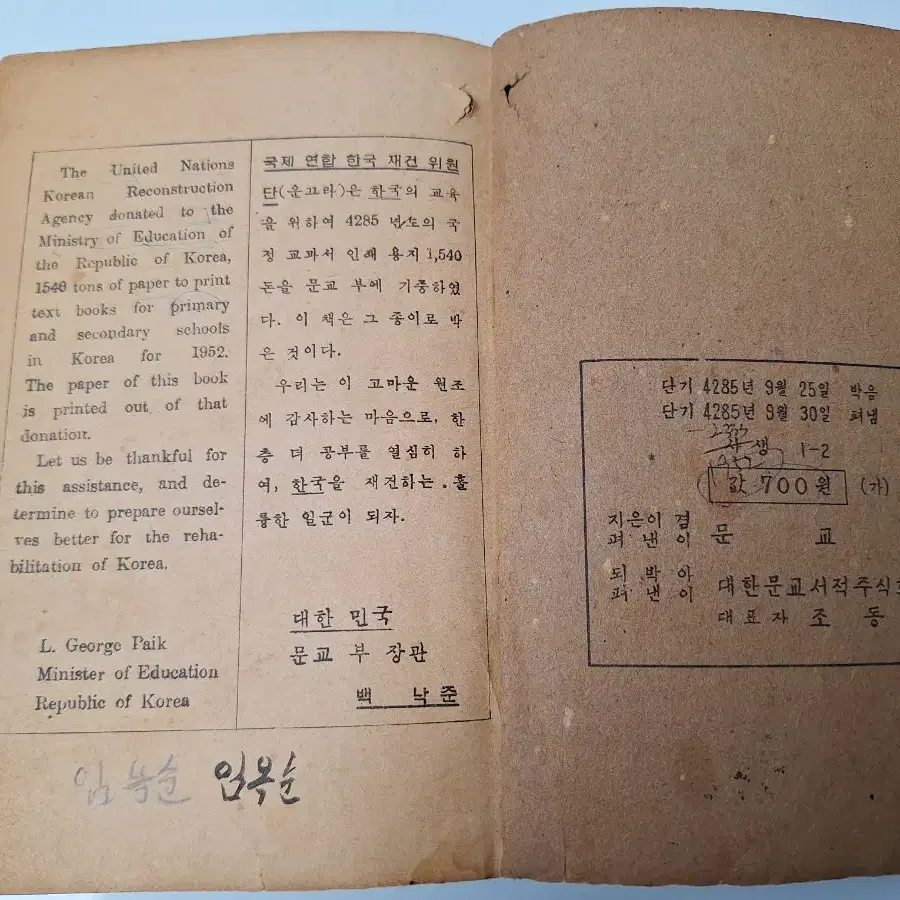 The United Nations
Korean Reconstruction
Agency donated to the
Ministry of Education of
the Republic of Korea,
1540 tons of paper to print
text books for primary
and secondary schools
in Korea for 1952.
The paper of this book
is printed out of that
donation.
Let us be thankful for
this assistance, and de-
termine to prepare oursel-
ves better for the reha-
bilitation of Korea.
L. George Paik
Minister of Education
Republic of Korea
국제 연합 한국 재건 위원
단(운끄라)은 한국의 교육
을 위하여 4285 년도의 국
정 교과서 인쇄 용지 1,540
돈을 문교 부에 기중하였
다. 이 책은 그 종이로 박
은 것이다.
우리는 이 고마운 원조
에 감사하는 마음으로, 한
층 더 공부를 열심히 하
여, 한국을 재건하는 훌
륭한 일군이 되자.
대한 민국
문교 부 장관
백 낙준
임복순 임복순
단기 4285년 9월 25일 박음
단기 4285년 9월 30일 펴냄
사생 1-2
값 700원 (가)
지은이 겸
펴 낸 이 문 교
되 박 아
펴 낸 이 대한문교서적주식
대표자 조 동